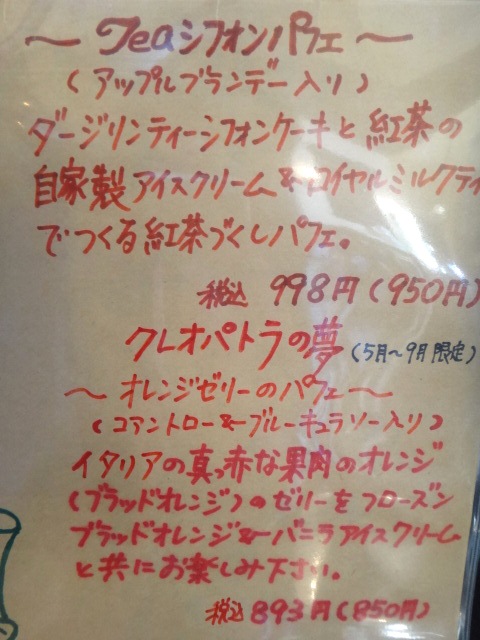 ～ Teaシフォンパフェ ～
(アップルブランデー入り)
ダージリンティーシフォンケーキと紅茶の
自家製アイスクリーム&ロイヤルミルクティ
でつくる紅茶づくしパフェ。
税込 998円(950円)
クレオパトラの夢 (5月～9月限定)
～ オレンジゼリーのパフェ ～
(コアントロー&ブルーキュラソー入り)
イタリアの真っ赤な果肉のオレンジ
(ブラッドオレンジ)のゼリーをフローズン
ブラッドオレンジ&バニラアイスクリーム
と共にお楽しみ下さい。
税込 893円(850円)